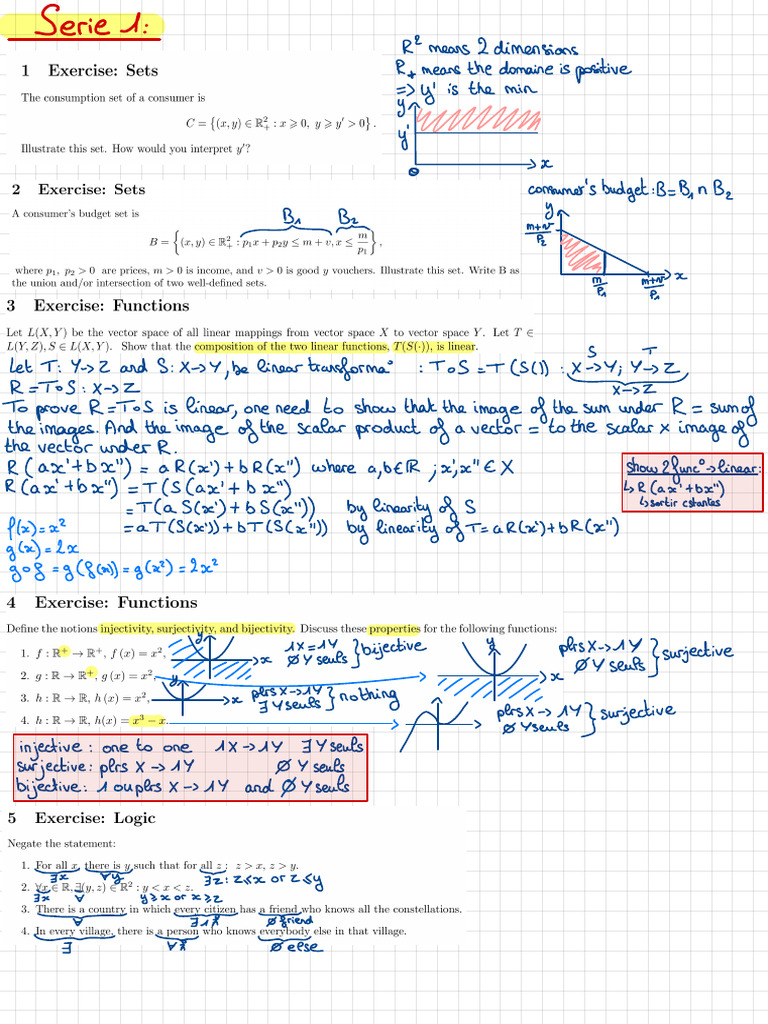 Serie 1:
R² means 2 dimensions
R₊ means the domaine is positive
=> y' is the min
1 Exercise: Sets
The consumption set of a consumer is
C = {(x, y) ∈ ℝ²₊ : x ⩾ 0, y ⩾ y′ > 0}.
Illustrate this set. How would you interpret y′?
y
y'
0
x
2 Exercise: Sets
consumer's budget : B = B₁ ∩ B₂
A consumer's budget set is
B₁ B₂
B = {(x, y) ∈ ℝ²₊ : p₁x + p₂y ≤ m + v, x ≤ m/p₁},
y
m+v/P₂
m/P₁
m+v/P₁
x
where p₁, p₂ > 0 are prices, m > 0 is income, and v > 0 is good y vouchers. Illustrate this set. Write B as
the union and/or intersection of two well-defined sets.
3 Exercise: Functions
Let L(X, Y) be the vector space of all linear mappings from vector space X to vector space Y. Let T ∈
L(Y, Z), S ∈ L(X, Y). Show that the composition of the two linear functions, T(S(·)), is linear.
Let T: Y->Z and S: X->Y, be linear transforma° : T∘S = T(S()) : X->Y; Y->Z
S T
R = T∘S : X->Z
X->Z
To prove R = T∘S is linear, one need to show that the image of the sum under R = sum of
the images. And the image of the scalar product of a vector = to the scalar x image of
the vector under R.
R(ax'+bx") = aR(x')+bR(x") where a,b∈ℝ ; x',x"∈X
R(ax'+bx") = T(S(ax'+bx")
=T(aS(x')+bS(x")) by linearity of S
=aT(S(x'))+bT(S(x")) by linearity of T = aR(x')+bR(x")
show 2 func°->linear:
↳ R(ax'+bx")
↳ sortir cstantes
f(x)=x²
g(x)=2x
g∘f = g(f(x)) = g(x²) = 2x²
4 Exercise: Functions
Define the notions injectivity, surjectivity, and bijectivity. Discuss these properties for the following functions:
1. f : ℝ⁺ → ℝ⁺, f (x) = x²,
y x
1X=1Y
∅ Y seuls } bijective
2. g : ℝ → ℝ⁺, g (x) = x²,
y x
plrs X->1Y
∅ Y seuls } surjective
3. h : ℝ → ℝ, h (x) = x²,
x
plrs X->1Y
∃ Y seuls } nothing
4. h : ℝ → ℝ, h(x) = x³ − x.
plrs X->1Y
∅ Y seuls } surjective
injective : one to one 1X->1Y ∃ Y seuls
surjective: plrs X->1Y ∅ Y seuls
bijective: 1 ou plrs X->1Y and ∅ Y seuls
5 Exercise: Logic
Negate the statement:
1. For all x, there is y such that for all z : z > x, z > y.
∃x ∀y ∃z: z≤x or z≤y
2. ∀x ∈ ℝ, ∃(y, z) ∈ ℝ² : y < x < z.
∃x ∀ y⩾x or x⩾z
3. There is a country in which every citizen has a friend who knows all the constellations.
∀ ∃1 ∅ friend
4. In every village, there is a person who knows everybody else in that village.
∃ ∀ ∅ else